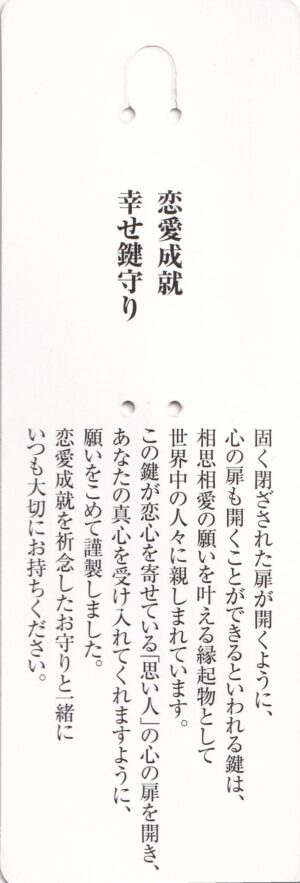 恋愛成就
幸せ鍵守り
固く閉ざされた扉が開くように、
心の扉も開くことができるといわれる鍵は、
相思相愛の願いを叶える縁起物として
世界中の人々に親しまれています。
この鍵が恋心を寄せている「思い人」の心の扉を開き、
あなたの真心を受け入れてくれますように、
願いをこめて謹製しました。
恋愛成就を祈念したお守りと一緒に
いつも大切にお持ちください。